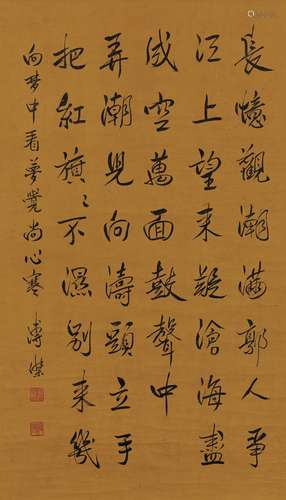 長憶觀潮滿郭人爭
江上望來疑滄海盡
成空萬面鼓聲中
弄潮兒向濤頭立手
把紅旗々不濕別來幾
向夢中看夢覺尚心寒 溥傑